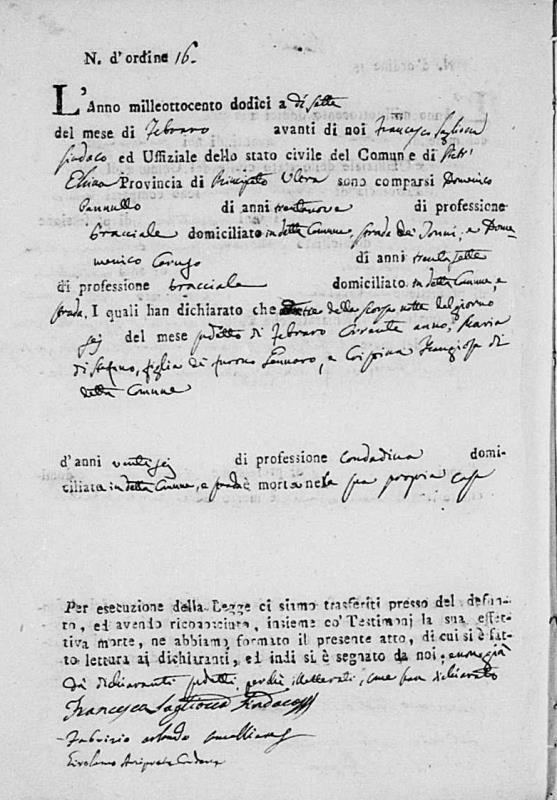 N. d'ordine 16.
L'Anno milleottocento dodici a di sette
del mese di Febraro avanti di noi Francesco Saglioca
Sindaco ed Uffiziale dello stato civile del Comune di
Provincia di Principato Ulera sono comparsi Domenico
Pannullo di anni trentanove di professione
bracciale domiciliato in detta Comune, strada dei Tonni, e Dome-
menico Caruso di anni trentasette
di professione bracciale domiciliato in detta Comune, e
strada. I quali han dichiarato che nella scorsa notte del giorno
sej del mese sudetto di Febraro corrente anno, Maria
di Stefano, figlia di furono Gennaro, e Crispina Frangiosa di
detta Comune
d'anni ventisej di professione condadina domi-
ciliata in detta Comune, e strada è morta nella sua propria casa
Per esecuzione della Legge ci siamo trasferiti presso del defun-
to, ed avendo riconosciuto, insieme co' Testimonj la sua effet-
tiva morte, ne abbiamo formato il presente atto, di cui si è fat-
to lettura ai dichiaranti, ed indi si è segnato da noi, e non già
da dichiaranti sudetti perchè illetterati, come han dichiarato
Francesco Saglioca Sindaco
Fabrizio
Girolamo